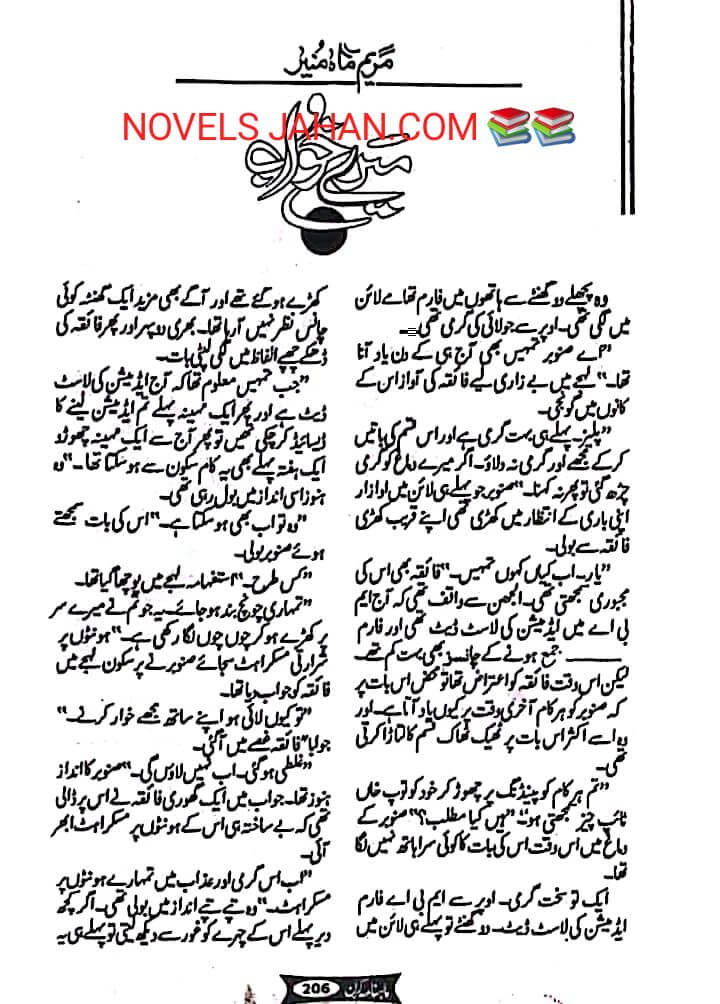 مریم ماہ منیر
NOVELS JAHAN.COM
وہ پچھلے دو گھنٹے سے ہاتھوں میں فارم تھامے لائن
میں لگی تھی۔ اوپر سے جولائی کی گرمی تھی۔
”اے صنوبر تمہیں بھی آج ہی کے دن یاد آنا
تھا۔“ لہجے میں بے زاری لیے فائقہ کی آواز اس کے
کانوں میں گونجی۔
”پلیز۔ پہلے ہی بہت گرمی ہے اور اس قسم کی باتیں
کر کے مجھے اور گرمی نہ دلاؤ۔ اگر میرے دماغ کو گرمی
چڑھ گئی تو پھر نہ کہنا۔“ صنوبر جو پہلے ہی لائن میں لاوازار
اپنی باری کے انتظار میں کھڑی تھی اپنے قریب کھڑی
فائقہ سے بولی۔
”یار۔ اب کیاں کہوں تمہیں۔“ فائقہ بھی اس کی
مجبوری سمجھتی تھی۔ الجھن سے واقف تھی کہ آج ایم
بی اے میں ایڈمیشن کی لاسٹ ڈیٹ تھی اور فارم
جمع ہونے کے چانسز بھی بہت کم تھے۔
لیکن اس وقت فائقہ کو اعتراض تھا تو محض اس بات پر
کہ صنوبر کو ہر کام آخری وقت پر کیوں یاد آتا ہے۔ اور
وہ اسے اکثر اس بات پر ٹھیک ٹھاک قسم کا لتاڑا کرتی
تھی۔
”تم ہر کام کو پینڈنگ پر چھوڑ کر خود کو توپ خاں
ٹائپ چیز سمجھتی ہو۔“ ”ہیں کیا مطلب؟“ صنوبر کے
دماغ میں اس وقت اس کی بات کا کوئی سرا ہاتھ نہیں لگا
تھا۔
ایک تو سخت گرمی۔ اوپر سے ایم بی اے فارم
ایڈمیشن کی لاسٹ ڈیٹ۔ دو گھنٹے تو پہلے ہی لائن میں
کھڑے ہو گئے تھے اور آگے بھی مزید ایک گھنٹہ کوئی
چانس نظر نہیں آ رہا تھا۔ بھری دوپہر اور پھر فائقہ کی
ڈھکے چھپے الفاظ میں لگی لپٹی بات۔
”جب تمہیں معلوم تھا کہ آج ایڈمیشن کی لاسٹ
ڈیٹ ہے اور پھر ایک مہینہ پہلے تم ایڈمیشن لینے کا
ڈیسائیڈ کر چکی تھیں تو پھر آج سے ایک مہینہ چھوڑو
ایک ہفتہ پہلے بھی یہ کام سکون سے ہو سکتا تھا۔“ وہ
ہنوز اسی انداز میں بول رہی تھی۔
”وہ تو اب بھی ہو سکتا ہے۔“ اس کی بات سمجھتے
ہوئے صنوبر بولی۔
”کس طرح۔“ استفہامیہ لہجے میں پوچھا گیا تھا۔
”تمہاری چونچ بند ہو جائے۔ یہ جو تم نے میرے سر
پر کھڑے ہو کر چوں چوں لگا رکھی ہے۔“ ہونٹوں پر
شرارتی مسکراہٹ سجائے صنوبر نے پر سکون لہجے میں
فائقہ کو جواب دیا تھا۔
”تو کیوں لائی ہو اپنے ساتھ مجھے خوار کرنے۔“
جوابا“ فائقہ غصے میں آ گئی۔
”غلطی ہو گئی۔ اب نہیں لاؤں گی۔“ صنوبر کا انداز
ہنوز تھا۔ جواب میں ایک گھوری فائقہ نے اس پر ڈالی
تھی کہ بے ساختہ ہی اس کے ہونٹوں پر مسکراہٹ ابھر
آئی۔
”اب اس گرمی اور عذاب میں تمہارے ہونٹوں پر
مسکراہٹ۔“ وہ تپے تپے انداز میں بولی تھی۔ اگر کچھ
دیر پہلے اس کے چہرے کو غور سے دیکھ لیتی تو پہلے ہی یہ
206